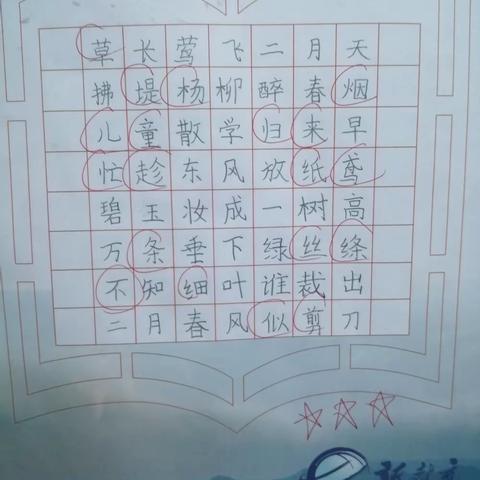 草长莺飞二月天
拂堤杨柳醉春烟
儿童散学归来早
忙趁东风放纸鸢
碧玉妆成一树高
万条垂下绿丝绦
不知细叶谁裁出
二月春风似剪刀